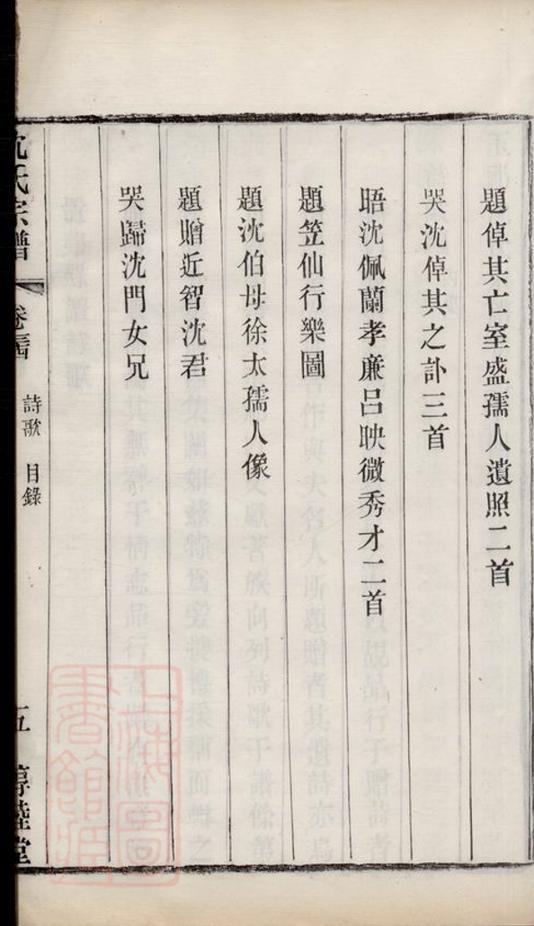 題倬其亡室盛孺人遺照二首
哭沈倬其之訃三首
晤沈佩蘭孝廉呂映微秀才二首
題笠仙行樂圖
題沈伯母徐太孺人像
題贈近智沈君
哭歸沈門女兄
沈氏宗譜
詩歌 目錄
五
惇睦堂
上海圖書館藏